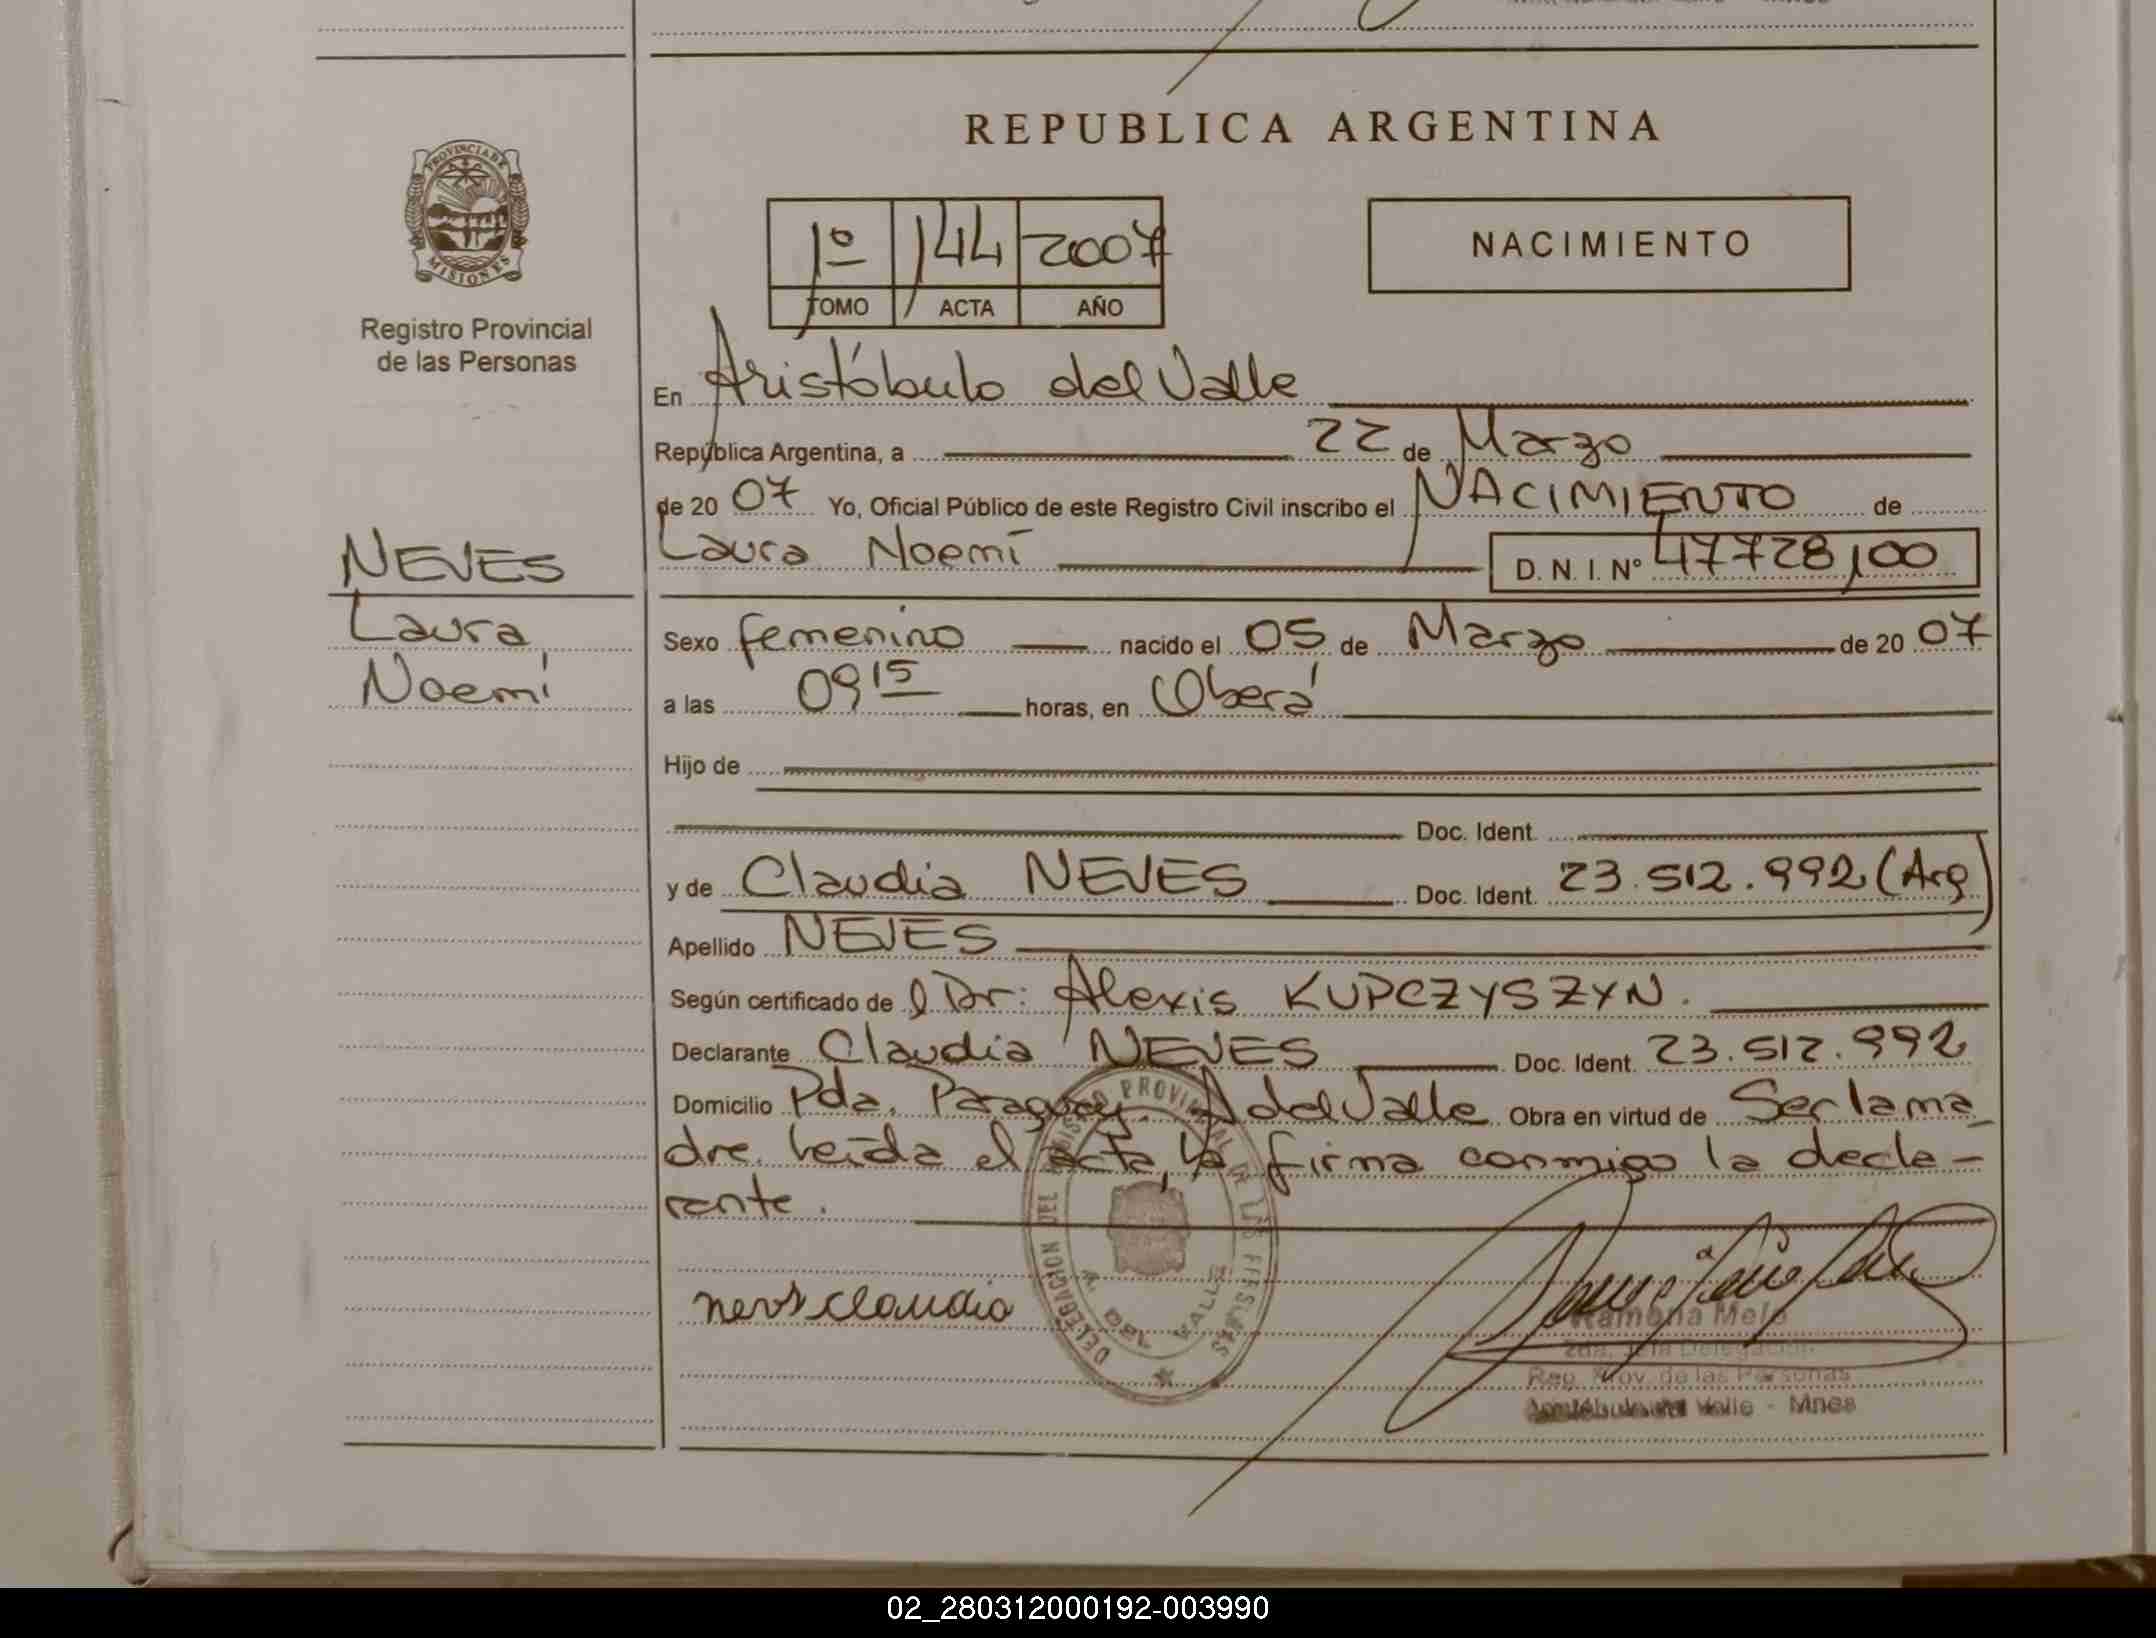 REPUBLICA ARGENTINA
PROVINCIA DE MISIONES
Registro Provincial
de las Personas
1º 144 2007
TOMO ACTA AÑO
NACIMIENTO
En Aristóbulo del Valle
República Argentina, a 22 de Marzo
de 20 07 Yo, Oficial Público de este Registro Civil inscribo el NACIMIENTO de
Laura Noemí D. N. I. Nº 47728,00
NEVES
Laura
Noemí
Sexo femenino nacido el 05 de Marzo de 20 07
a las 09 15 horas, en Oberá
Hijo de
Doc. Ident.
y de Claudia NEVES Doc. Ident. 23.512.992 (Arg)
Apellido NEVES
Según certificado de l Dr: Alexis KUPCZYSZYN.
Declarante Claudia NEVES Doc. Ident. 23.512.992
Domicilio Pda. Paraguay. A del Valle Obra en virtud de Ser la ma-
dre. Leída el acta, la firma conmigo la decla-
rante.
DELEGACION DEL REGISTRO PROVINCIAL DE LAS PERSONAS
VALLE
nevs claudia
Ramona Melo
2da. Jefa Delegación
Reg. Prov. de las Personas
Aristóbulo del Valle - Mnes
02_280312000192-003990